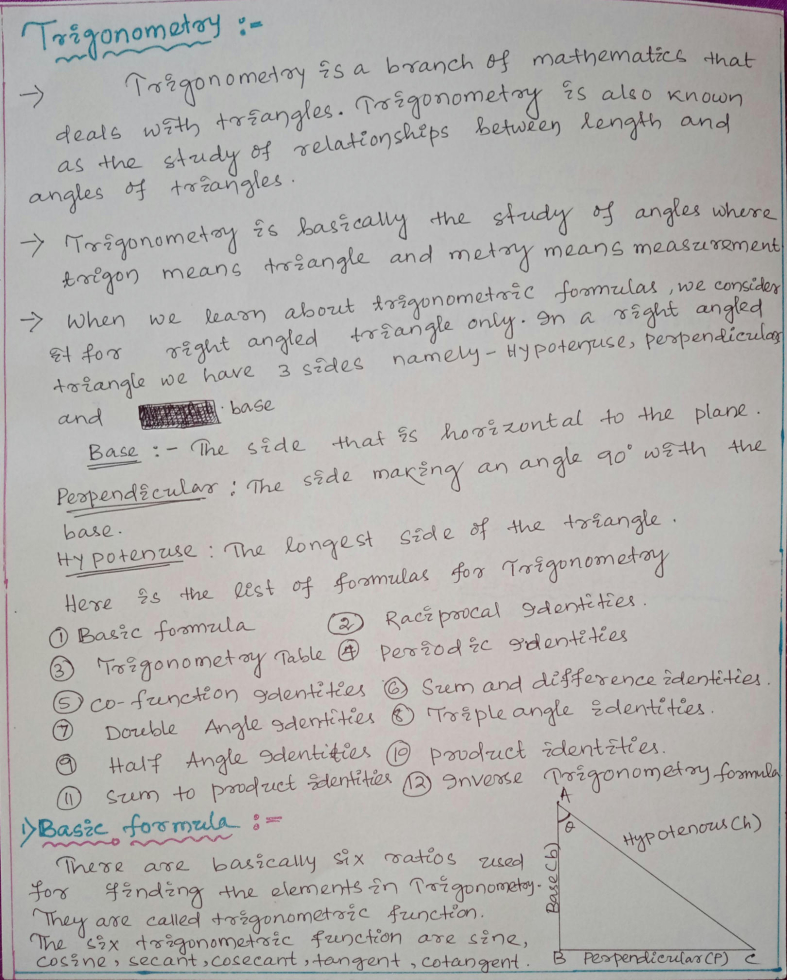 Trigonometry :-
→ Trigonometry is a branch of mathematics that
deals with triangles. Trigonometry is also known
as the study of relationships between length and
angles of triangles.
→ Trigonometry is basically the study of angles where
trigon means triangle and metry means measurement
→ When we learn about trigonometric formulas, we consider
it for right angled triangle only. In a right angled
triangle we have 3 sides namely - Hypotenuse, perpendicular
and base
Base :- The side that is horizontal to the plane.
Perpendicular : The side making an angle 90° with the
base.
Hypotenuse : The longest side of the triangle.
Here is the list of formulas for Trigonometry
① Basic formula ② Raciprocal Identities.
③ Trigonometry Table ④ Periodic identities
⑤ co-function Identities ⑥ Sum and difference identities.
⑦ Double Angle Identities ⑧ Triple angle identities.
⑨ Half Angle Identities ⑩ product identities.
⑪ sum to product identities ⑫ Inverse Trigonometry formula
1) Basic formula :-
There are basically six ratios used
for finding the elements in Trigonometry.
They are called trigonometric function.
The six trigonometric function are sine,
cosine, secant, cosecant, tangent, cotangent.
A
θ
Hypotenous(h)
Base(b)
B Perpendicular(P) C